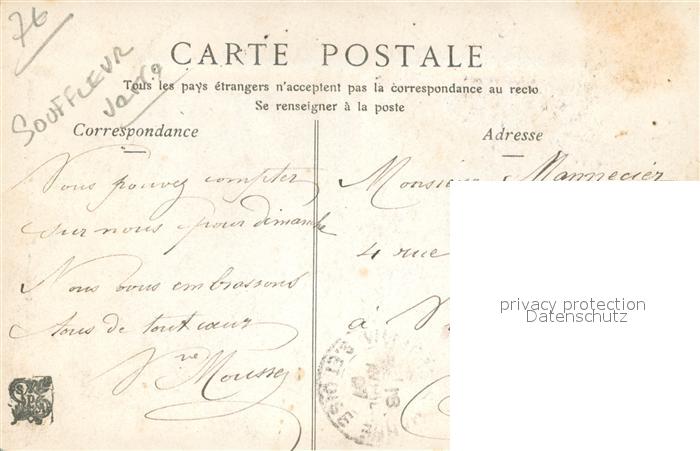 76
SOUFFLEUR
CARTE POSTALE
Tous les pays étrangers n'acceptent pas la correspondance au recto
Se renseigner à la poste
Correspondance
Vous pouvez compter
sur nous pour dimanche
Nous vous embrassons
tous de tout cœur
Vve Mousse
Adresse
Monsieur Mannecier
4 rue
à
privacy protection
Datenschutz